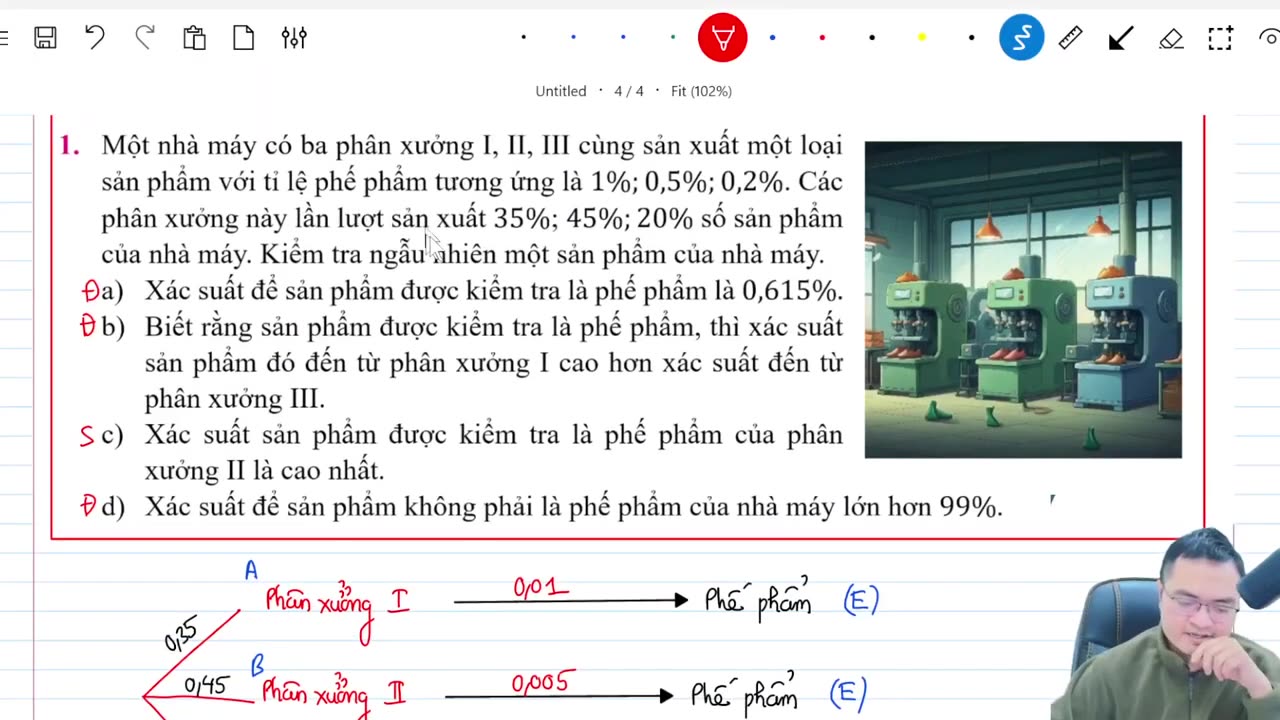 Untitled · 4 / 4 · Fit (102%)
1. Một nhà máy có ba phân xưởng I, II, III cùng sản xuất một loại
sản phẩm với tỉ lệ phế phẩm tương ứng là 1%; 0,5%; 0,2%. Các
phân xưởng này lần lượt sản xuất 35%; 45%; 20% số sản phẩm
của nhà máy. Kiểm tra ngẫu nhiên một sản phẩm của nhà máy.
Đ a) Xác suất để sản phẩm được kiểm tra là phế phẩm là 0,615%.
Đ b) Biết rằng sản phẩm được kiểm tra là phế phẩm, thì xác suất
sản phẩm đó đến từ phân xưởng I cao hơn xác suất đến từ
phân xưởng III.
S c) Xác suất sản phẩm được kiểm tra là phế phẩm của phân
xưởng II là cao nhất.
Đ d) Xác suất để sản phẩm không phải là phế phẩm của nhà máy lớn hơn 99%.
A
Phân xưởng I 0,01 Phế phẩm (E)
0,35
B
0,45 Phân xưởng II 0,005 Phế phẩm (E)